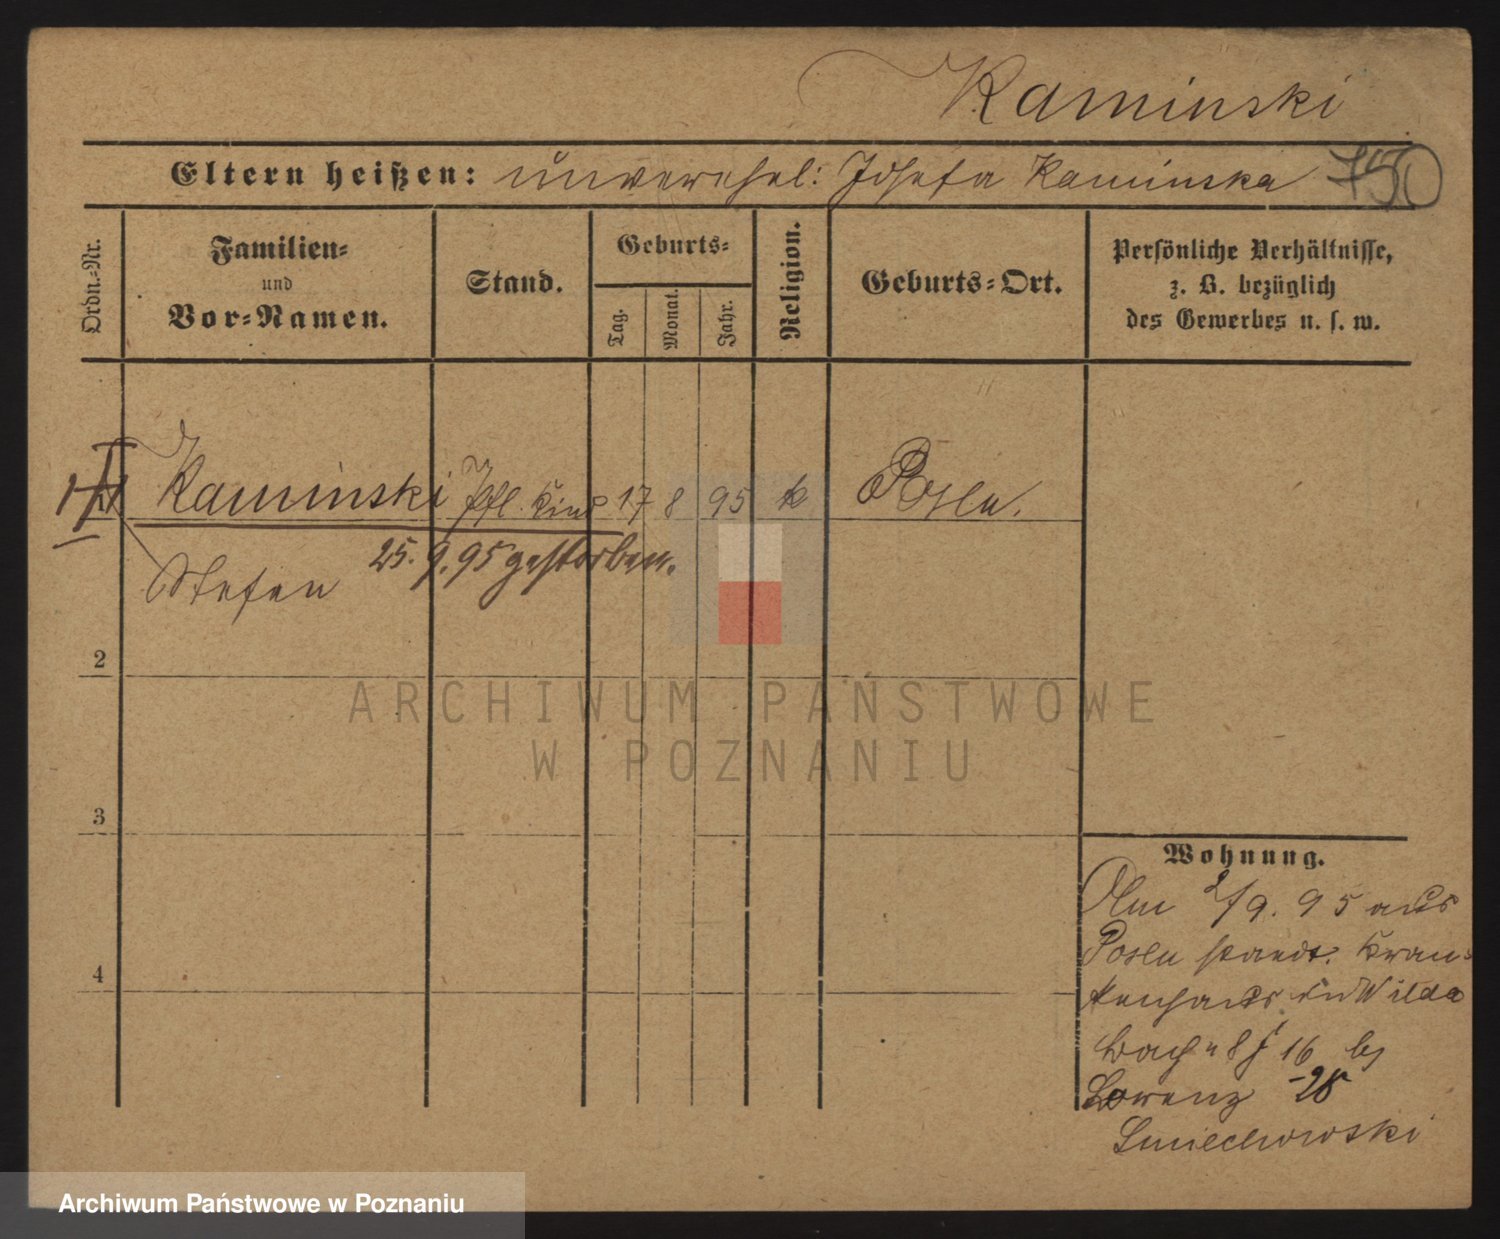 Kaminski
Eltern heißen: unverehel: Josefa Kaminska 750
Ordn.-Nr.
Familien-
und
Vor-Namen.
Stand.
Geburts-
Tag.
Monat.
Jahr.
Religion.
Geburts-Ort.
Persönliche Verhältnisse,
z. B. bezüglich
des Gewerbes u. s. w.
1 Kaminski Pfl. Kind 17 8 95 k Posen.
Stefan 25. 9. 95 gestorben.
2
3
4
Wohnung.
Am 2/9. 95 aus
Posen staedt. Kran-
kenhaus in Wilda
16 bei
Lorenz 25
Smiechowski
ARCHIWUM PAŃSTWOWE
W POZNANIU
Archiwum Państwowe w Poznaniu